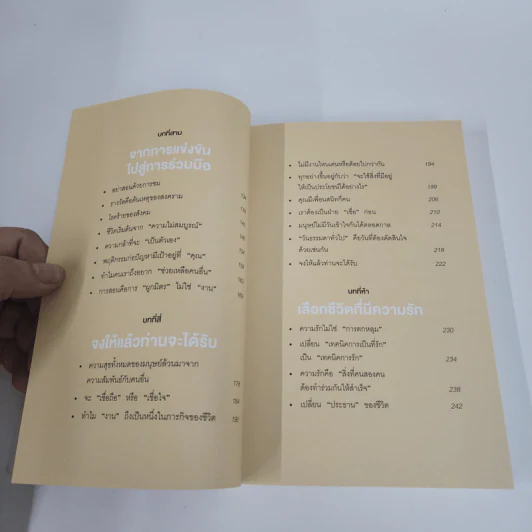 บทที่สาม
จากการแข่งขัน
ไปสู่การร่วมมือ
• อย่าสอนด้วยการชม
• รางวัลคือต้นเหตุของสงคราม
• โรคร้ายของสังคม
• ชีวิตเริ่มต้นจาก “ความไม่สมบูรณ์”
• ความกล้าที่จะ “เป็นตัวเอง”
• พฤติกรรมก่อปัญหามีเป้าอยู่ที่ “คุณ”
• ทำไมคนเราถึงอยาก “ช่วยเหลือคนอื่น”
• การสอนคือการ “ผูกมิตร” ไม่ใช่ “งาน”
บทที่สี่
จงให้แล้วท่านจะได้รับ
• ความสุขทั้งหมดของมนุษย์ล้วนมาจาก
ความสัมพันธ์กับคนอื่น 178
• จะ “เชื่อถือ” หรือ “เชื่อใจ” 184
• ทำไม “งาน” ถึงเป็นหนึ่งในภารกิจของชีวิต 190
• ไม่มีงานไหนเด่นหรือด้อยไปกว่ากัน 194
• ทุกอย่างขึ้นอยู่กับว่า “จะใช้สิ่งที่มีอยู่
ให้เป็นประโยชน์ได้อย่างไร” 199
• คุณมีเพื่อนสนิทกี่คน 206
• เราต้องเป็นฝ่าย “เชื่อ” ก่อน 210
• มนุษย์ไม่มีวันเข้าใจกันได้ตลอดกาล 214
• “วันธรรมดาทั่วไป” คือวันที่ต้องตัดสินใจ
ด้วยเช่นกัน 218
• จงให้แล้วท่านจะได้รับ 222
บทที่ห้า
เลือกชีวิตที่มีความรัก
• ความรักไม่ใช่ “การตกหลุม” 230
• เปลี่ยน “เทคนิคการเป็นที่รัก”
เป็น “เทคนิคการรัก” 234
• ความรักคือ “สิ่งที่คนสองคน
ต้องทำร่วมกันให้สำเร็จ” 238
• เปลี่ยน “ประธาน” ของชีวิต 242